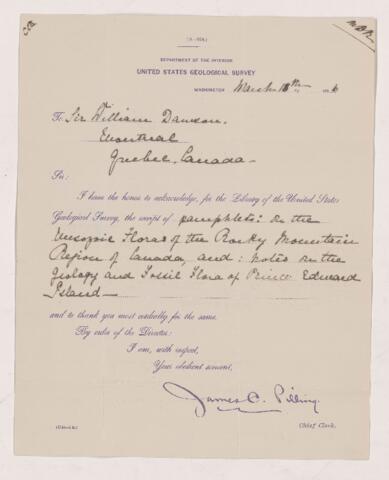 (9—924.)
DEPARTMENT OF THE INTERIOR
UNITED STATES GEOLOGICAL SURVEY
WASHINGTON March 18th, 188 6
To Sir William Dawson.
Montreal
Quebec. Canada—
Sir:
I have the honor to acknowledge, for the Library of the United States
Geological Survey, the receipt of pamphlets: On the
Mesozoic Floras of the Rocky Mountain
Region of Canada, and: Notes on the
Geology and Fossil Flora of Prince Edward
Island—
and to thank you most cordially for the same.
By order of the Director:
I am, with respect,
Your obedient servant,
James C. Pilling.
Chief Clerk.